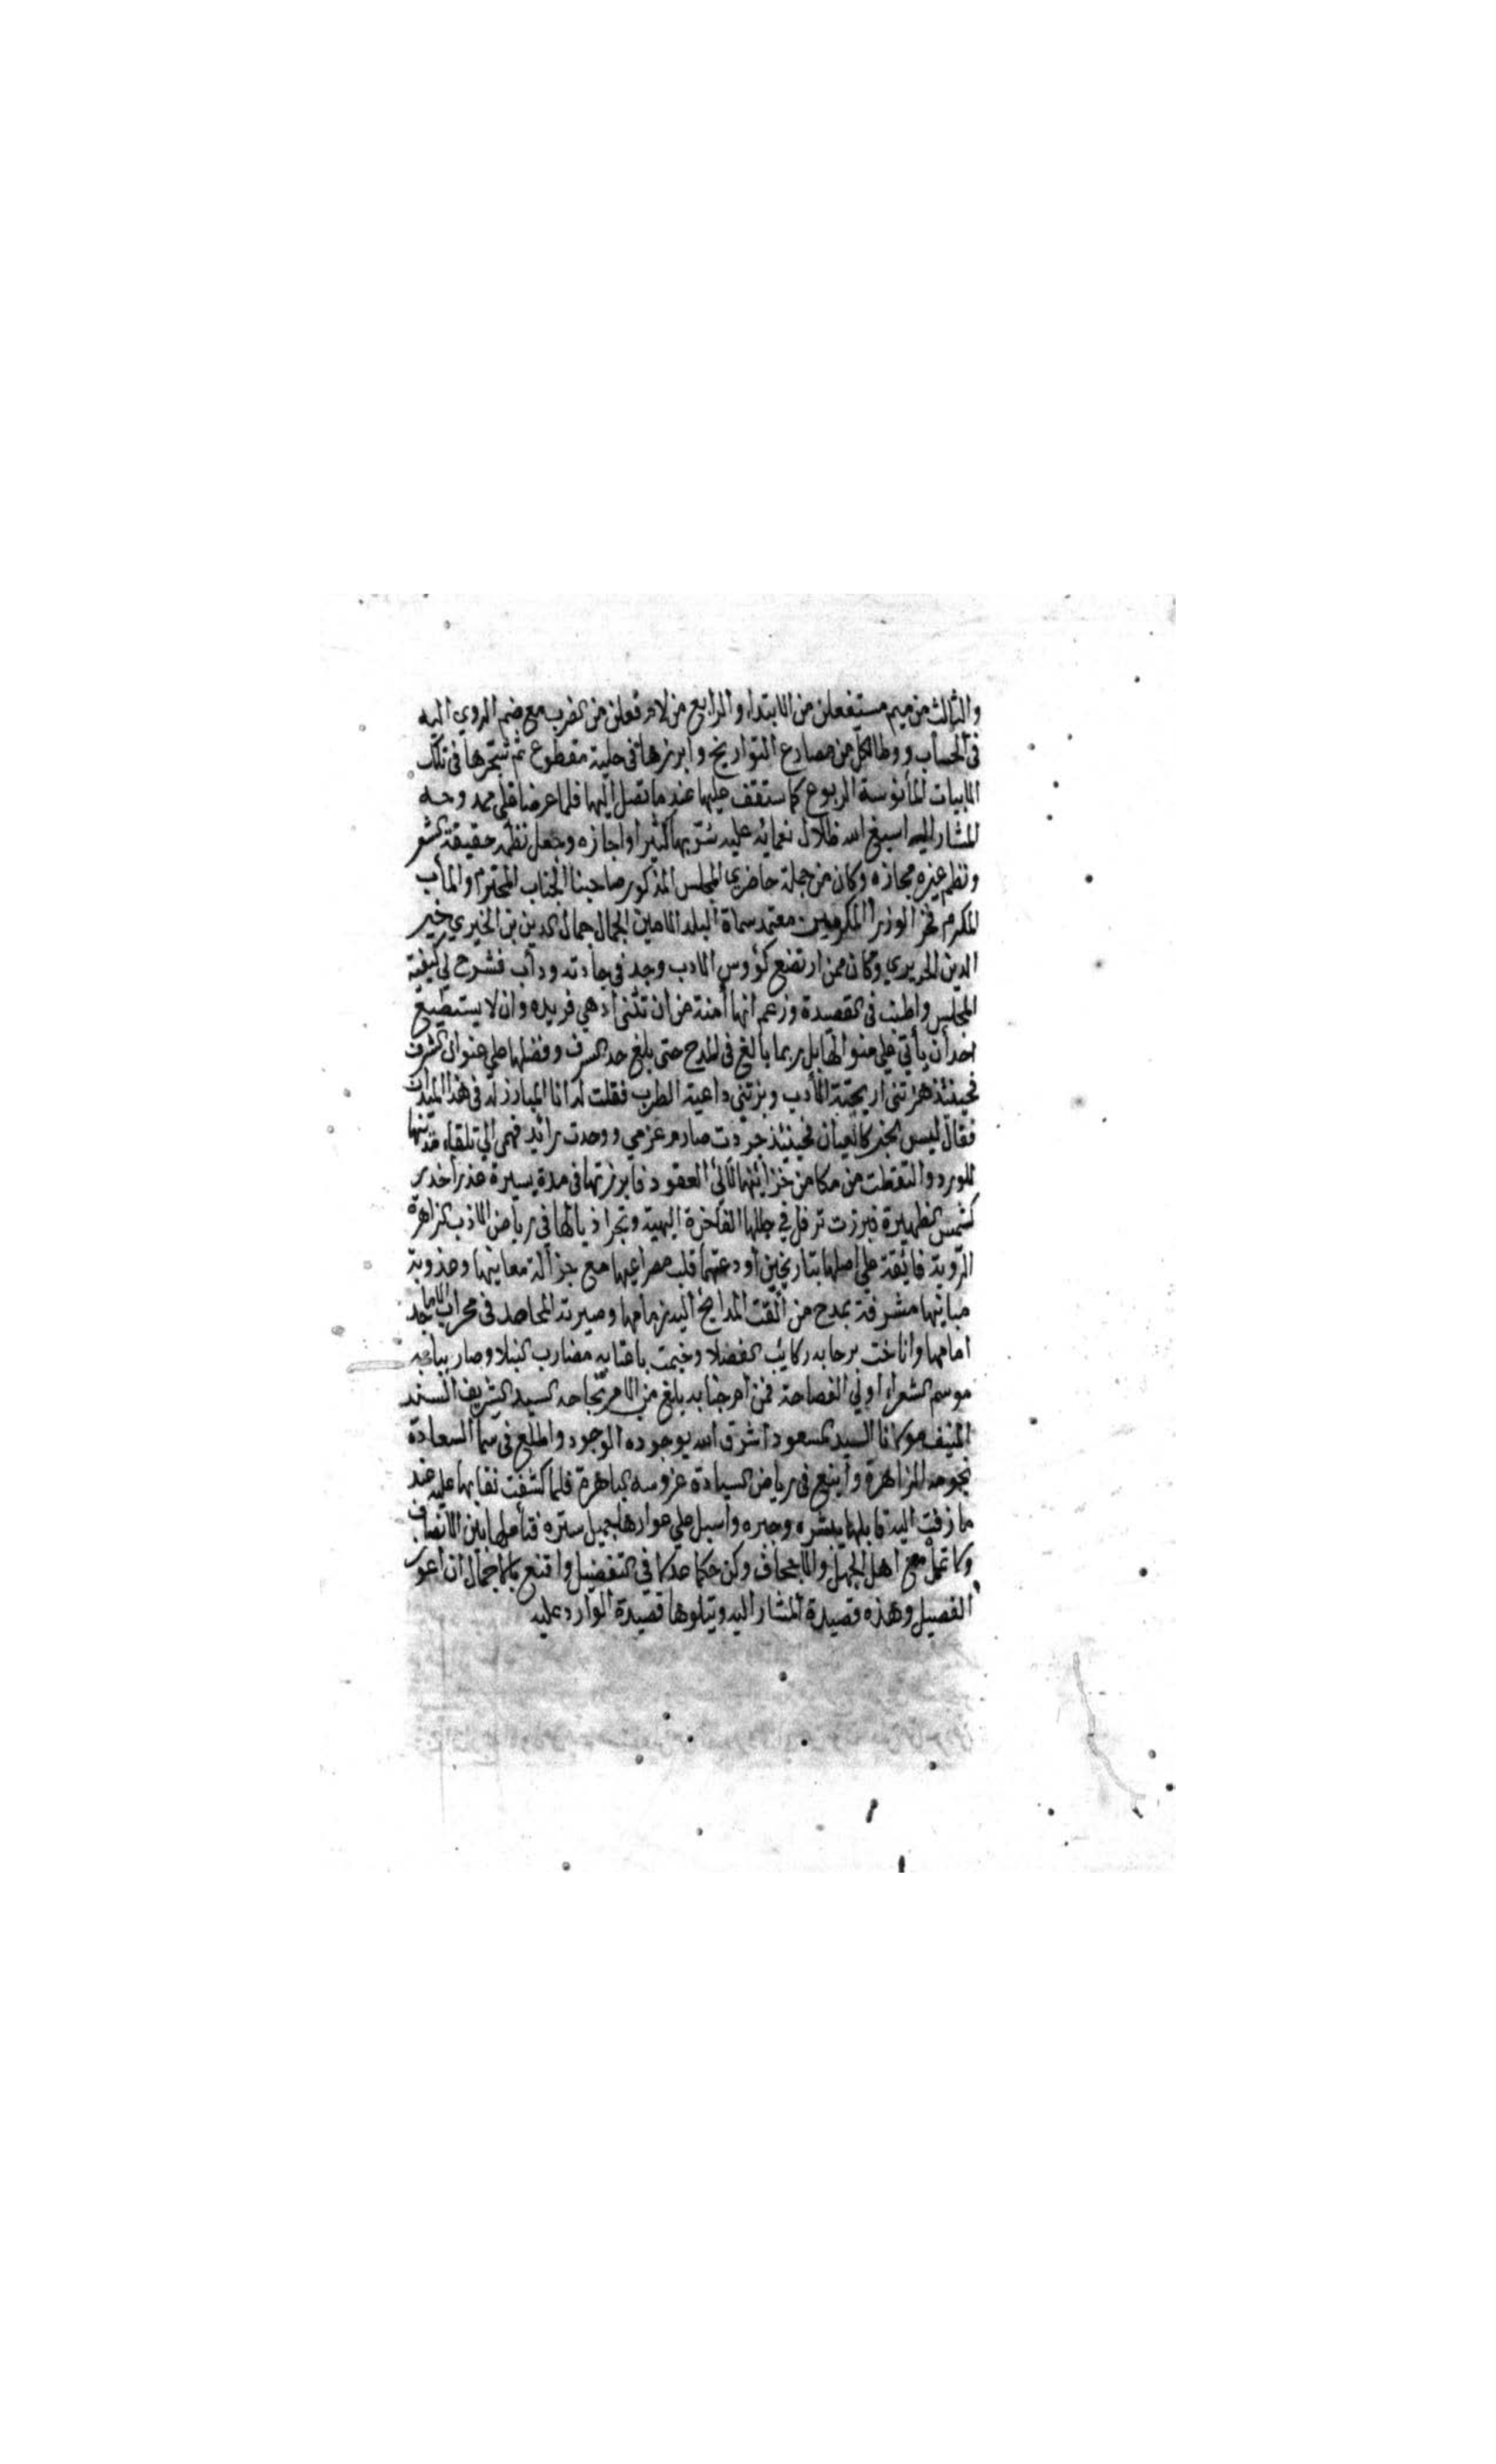 والثالث من ميم مستفعلن من الابتداء والرابع من لام فعلن من الضرب مع ضم الروي اليه
في الحساب ووطا لكل من مصارع التواريخ وابرزها في حلية مقطوع ثم شجرها في تلك
الابيات المأنوسة الربوع كما ستقف عليها عند ما تصل اليها فلما عرضنا على ممدوحه
المشار اليه اسبغ الله ظلال نعمائه عليه سر بها كثيرا واجازه وجعل نظمه حقيقة الشعر
ونظم غيره مجازه وكان من جملة حاضري المجلس المذكور صاحبنا الجناب المحترم والمأب
المكرم فخر الوزرا المكرمين معتمد سماة البلد الامين الجمال جمال الدين بن الخيري خير
الدين الحريري وكان ممن ارتضع كؤوس الادب وجد في جادته ودأب فشرح لي كيفية
المجلس واطنب في القصيدة وزعم انها أمنة من ان تثنى اذ هي فريده وان لا يستطيع
احد أن يأتي على منوالها بل ربما بالغ في المدح حتى بلغ حد السرف وفضلها على عنوان الشرف
فحينئذ هزتني اريحية الأدب وبزتني داعية الطرب فقلت له انا المبارز له في هذا الميدان
فقال ليس الخبر كالعيان فحينئذ جردت صارم عزمي ووجدت رائد فهمي الي تلقاء مدينها
للورد والتقطت من مكامن خزائنها لآلئ العقود فابرزتها في مدة يسيرة عذرا خدر
كشمس الظهيرة فبرزت ترفل في حللها الفاخرة البهية وتجر اذيالها في رياض الادب الزاهرة
الروية فائقة على اصلها بتاريخين أودعتهما قلب مصراعيها مع جزالة معانيها وعذوبة
مبانيها مشرفة بمدح من ألقت المدائح اليه زمامها وصيرته المحامد في محراب الاماجد
امامها واناخت برحابه ركائب الفضلا وخيمت باعتابه مضارب النبلا وصار ببابه
موسم الشعراء اولي الفصاحة فمن ام جنابه بلغ من الامر نجاحه السيد الشريف السند
المنيف مولانا السيد المسعود أشرق الله بوجوده الوجود واطلع في سما السعادة
نجومه الزاهرة وأينع في رياض السيادة غروسه الباهرة فلما كشفت نقابها عليه عند
ما زفت اليه قابلها ببشره وجبره واسبل على عوارها جميل ستره فتأملها بعين الانصاف
ولا تمل مع اهل الجهل والاجحاف وكن حكما عدلا في التفضيل واقنع بالاجمال ان اعوز
التفصيل وهذه قصيدة المشار اليه وتيلوها قصيدة الوارد عليه